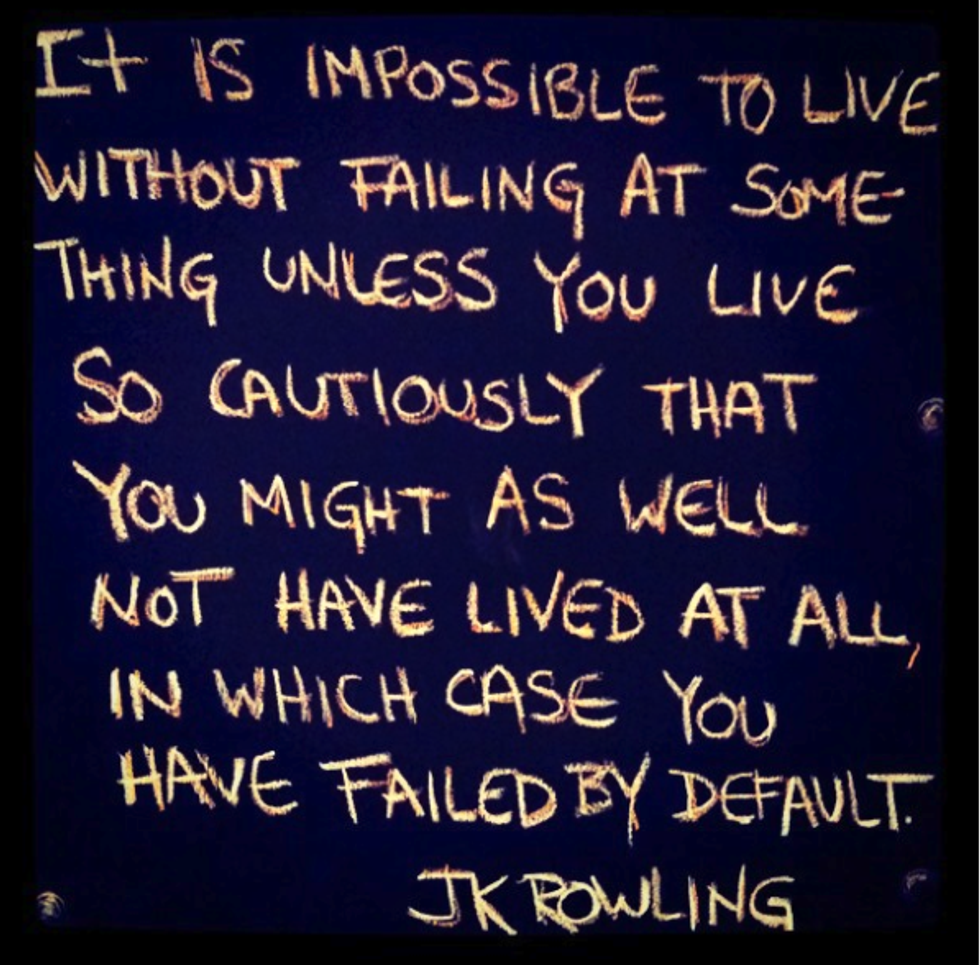 It IS IMPOSSIBLE TO LIVE
WITHOUT FAILING AT SOME-
THING UNLESS YOU LIVE
SO CAUTIOUSLY THAT
YOU MIGHT AS WELL
NOT HAVE LIVED AT ALL,
IN WHICH CASE YOU
HAVE FAILED BY DEFAULT.
JK ROWLING